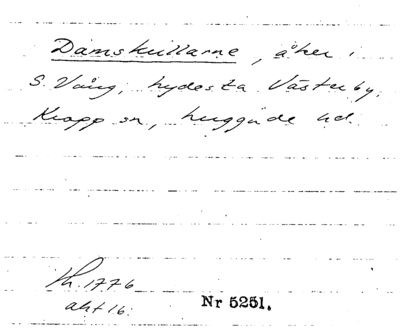 Damskullarne, åker i
S. Vång, Lydesta Västerby.
Kropp sn, Luggude hd.
Kh. 1776
akt 16.
Nr 5251.